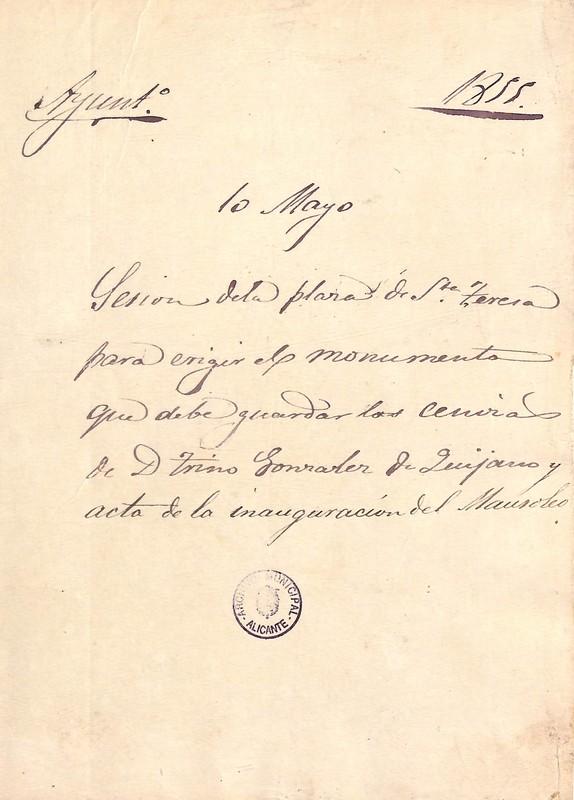 Ayunt.º
1855.
10 Mayo
Sesion dela plaza de Sta. Teresa
para erigir el monumento
que debe guardar las cenizas
de D Trino Gonzalez de Quijano y
acta de la inauguración del Mausoleo
ARCHIVO MUNICIPAL
- ALICANTE -